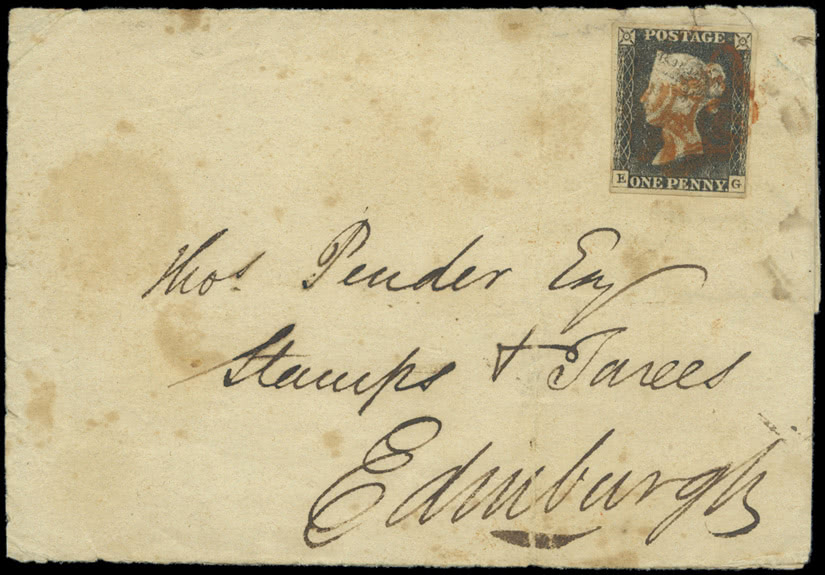 POSTAGE
E ONE PENNY G
Thos Pender Esq
Stamps & Taxes
Edinburgh